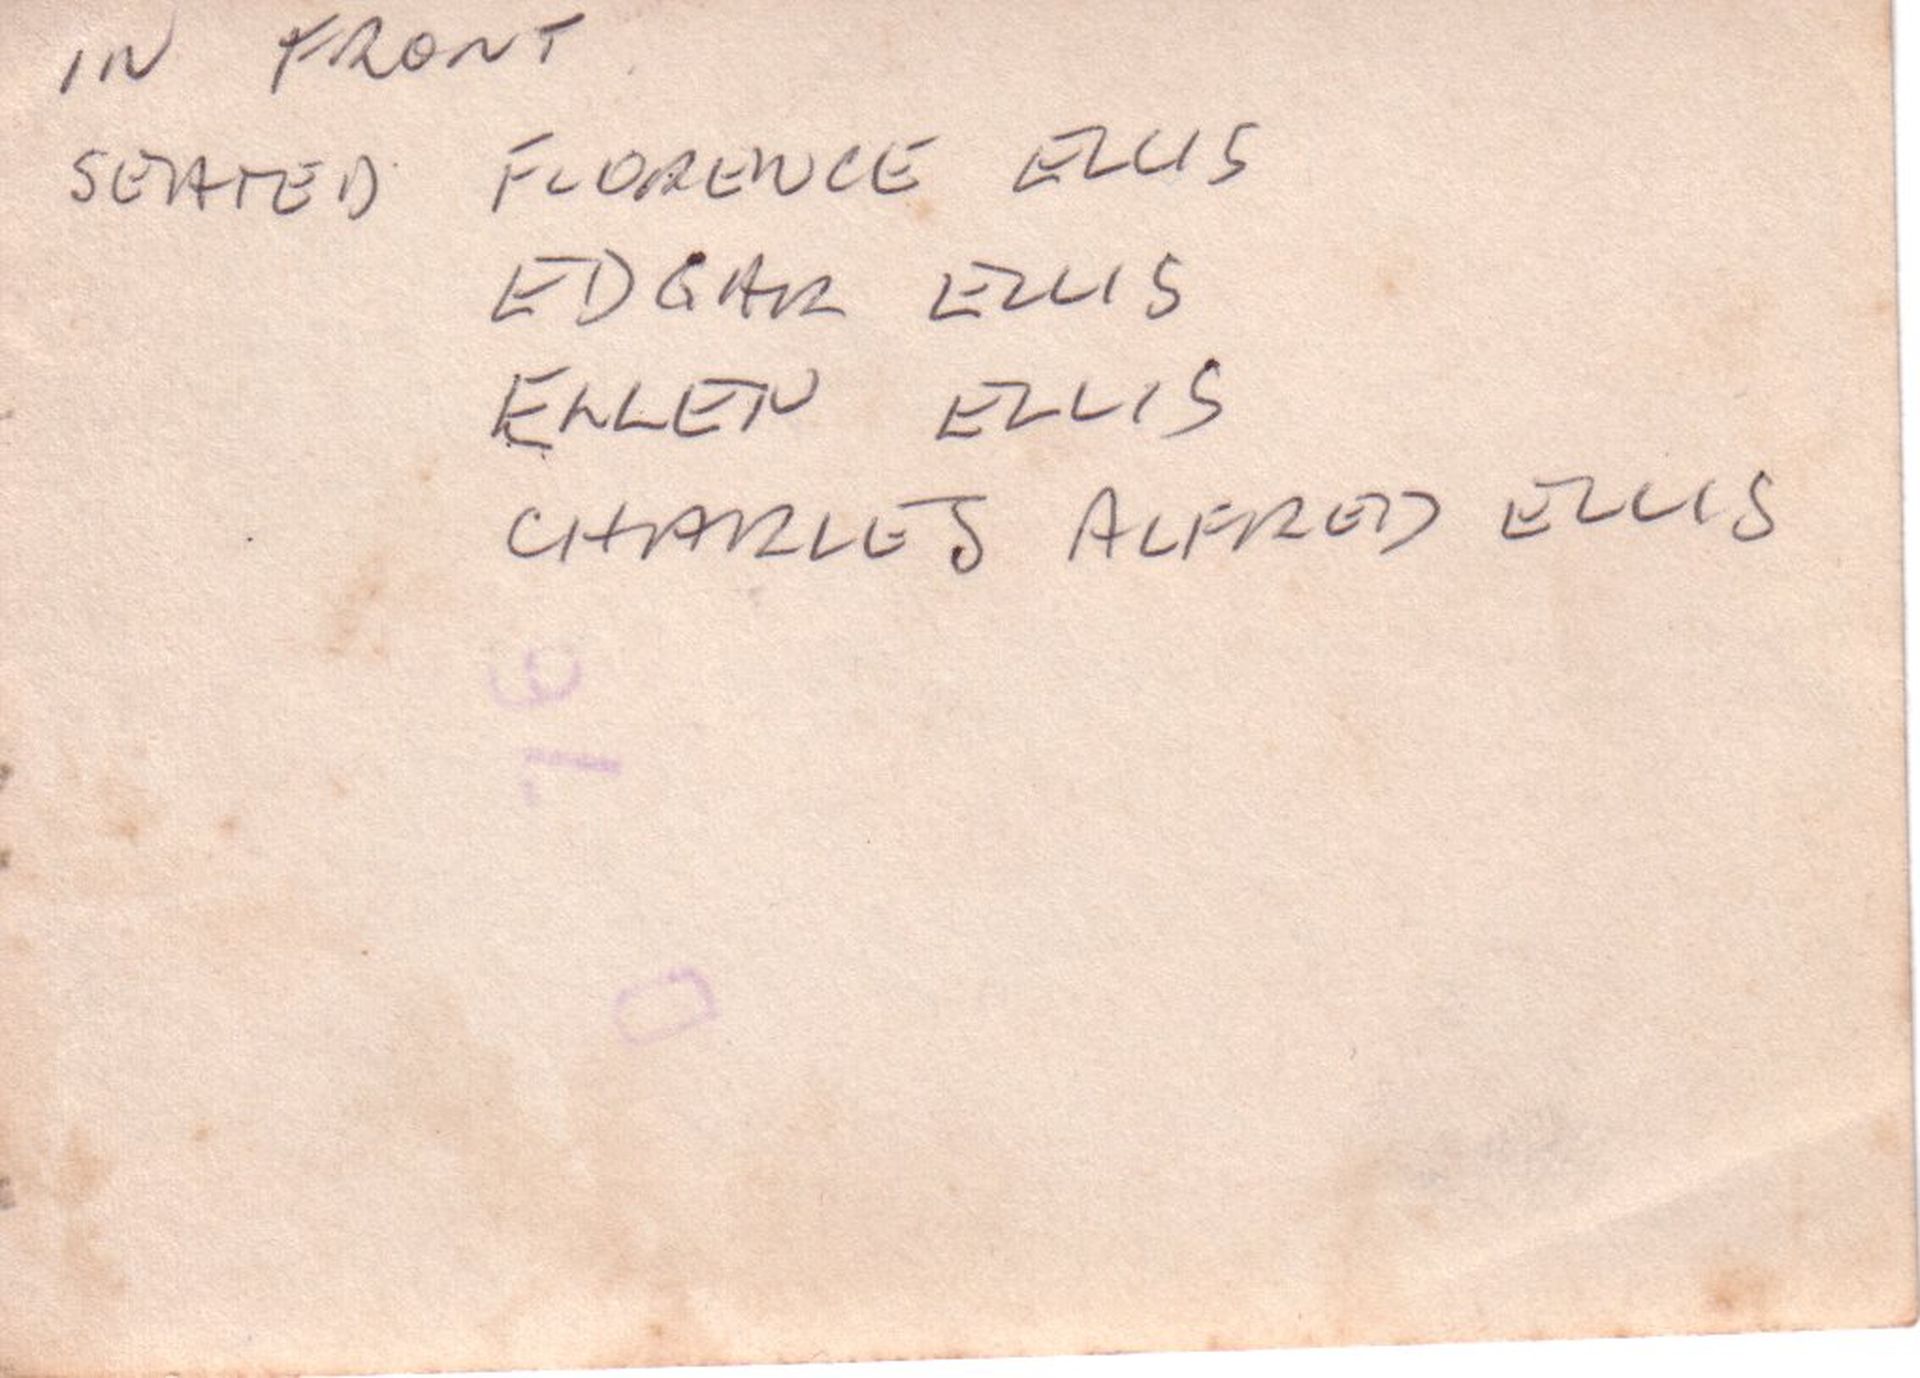 IN FRONT
SEATED FLORENCE ELLIS
EDGAR ELLIS
ELLEN ELLIS
CHARLES ALFRED ELLIS